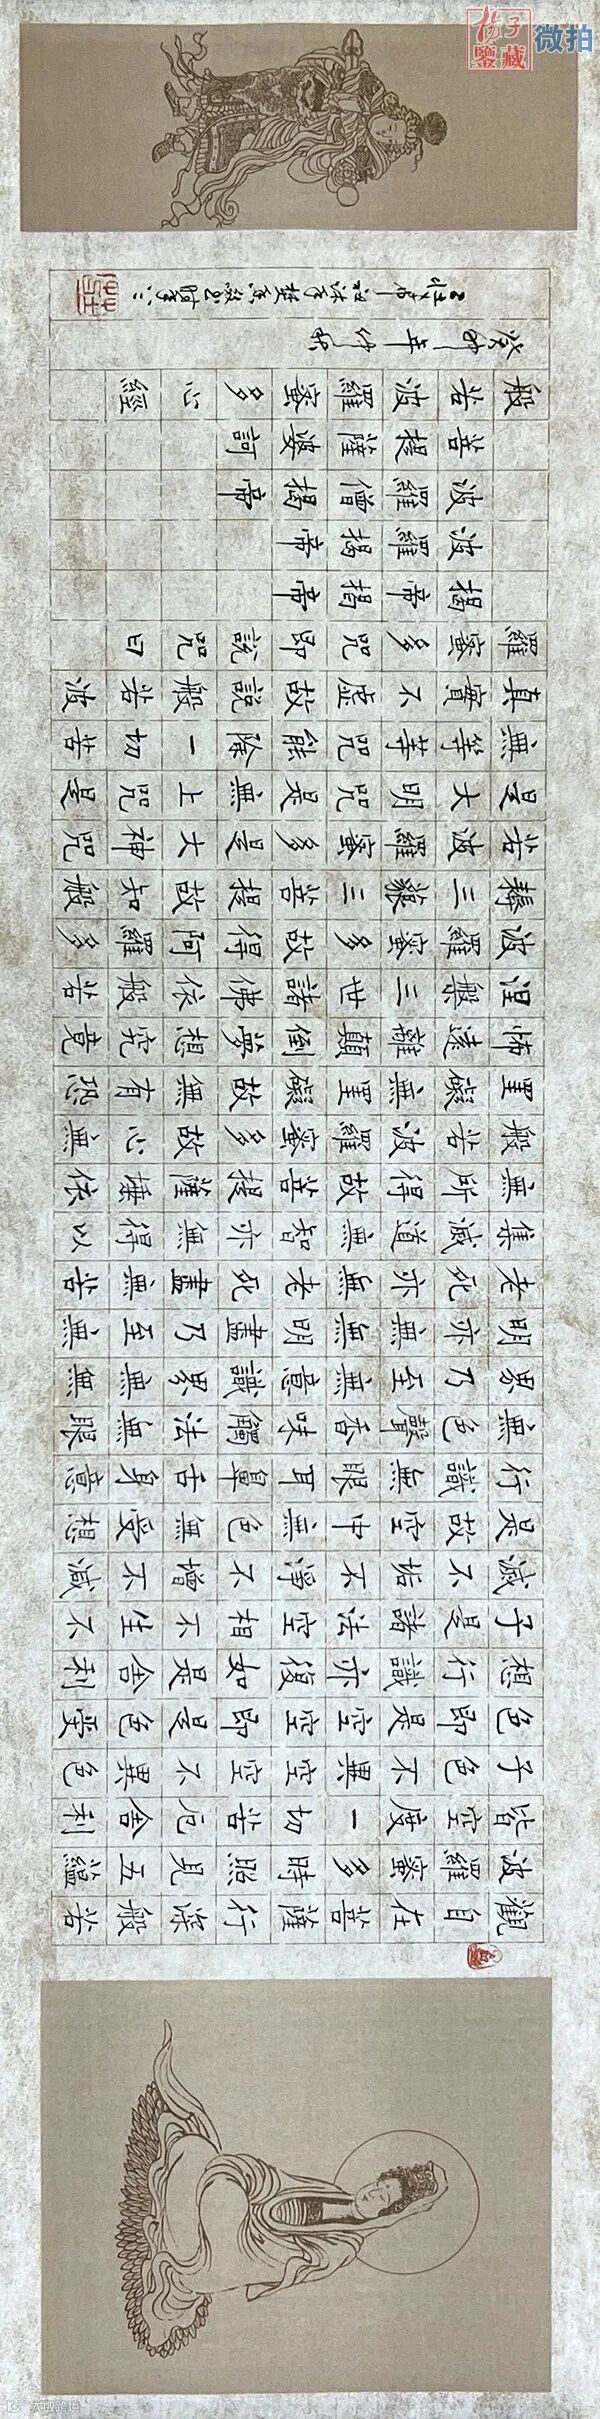 觀自在菩薩行深般若
波羅蜜多時照見五蘊
皆空度一切苦厄舍利
子色不異空空不異色
色即是空空即是色受
想行識亦復如是舍利
子是諸法空相不生不
滅不垢不淨不增不減
是故空中無色無受想
行識無眼耳鼻舌身意
無色聲香味觸法無眼
界乃至無意識界無無
明亦無無明盡乃至無
老死亦無老死盡無苦
集滅道無智亦無得以
無所得故菩提薩埵依
般若波羅蜜多故心無
罣礙無罣礙故無有恐
怖遠離顛倒夢想究竟
涅槃三世諸佛依般若
波羅蜜多故得阿羅多
耨三藐三菩提故知般
若波羅蜜多是大神咒
是大明咒是無上咒是
無等等咒能除一切苦
真實不虛故說般若波
羅蜜多咒即說咒曰
揭帝揭帝
波羅揭帝
波羅僧揭帝
菩提薩婆訶
般若波羅蜜多心經
癸卯年仲秋
揚子鑒藏
微拍